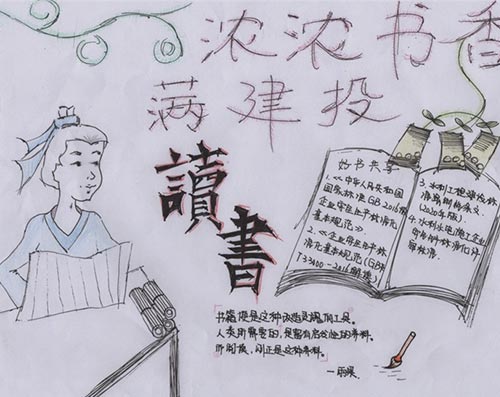 浓浓书香
满建投
讀書
好书共享
1.《中华人民共和国
国家标准GB2016版
企业安全生产标准化
基本规范》.
2.《企业安全生产标
准化基本规范(GB/T
T33000-2016解读)
3.水利工程建设标
(2020年版).
4.水利水电施工企业
安全生产标准化评
审标准.
书籍便是这种改造灵魂的工具。
人类所需要的,是富有启发性的养料。
而阅读,则正是这种养料。
—雨果.